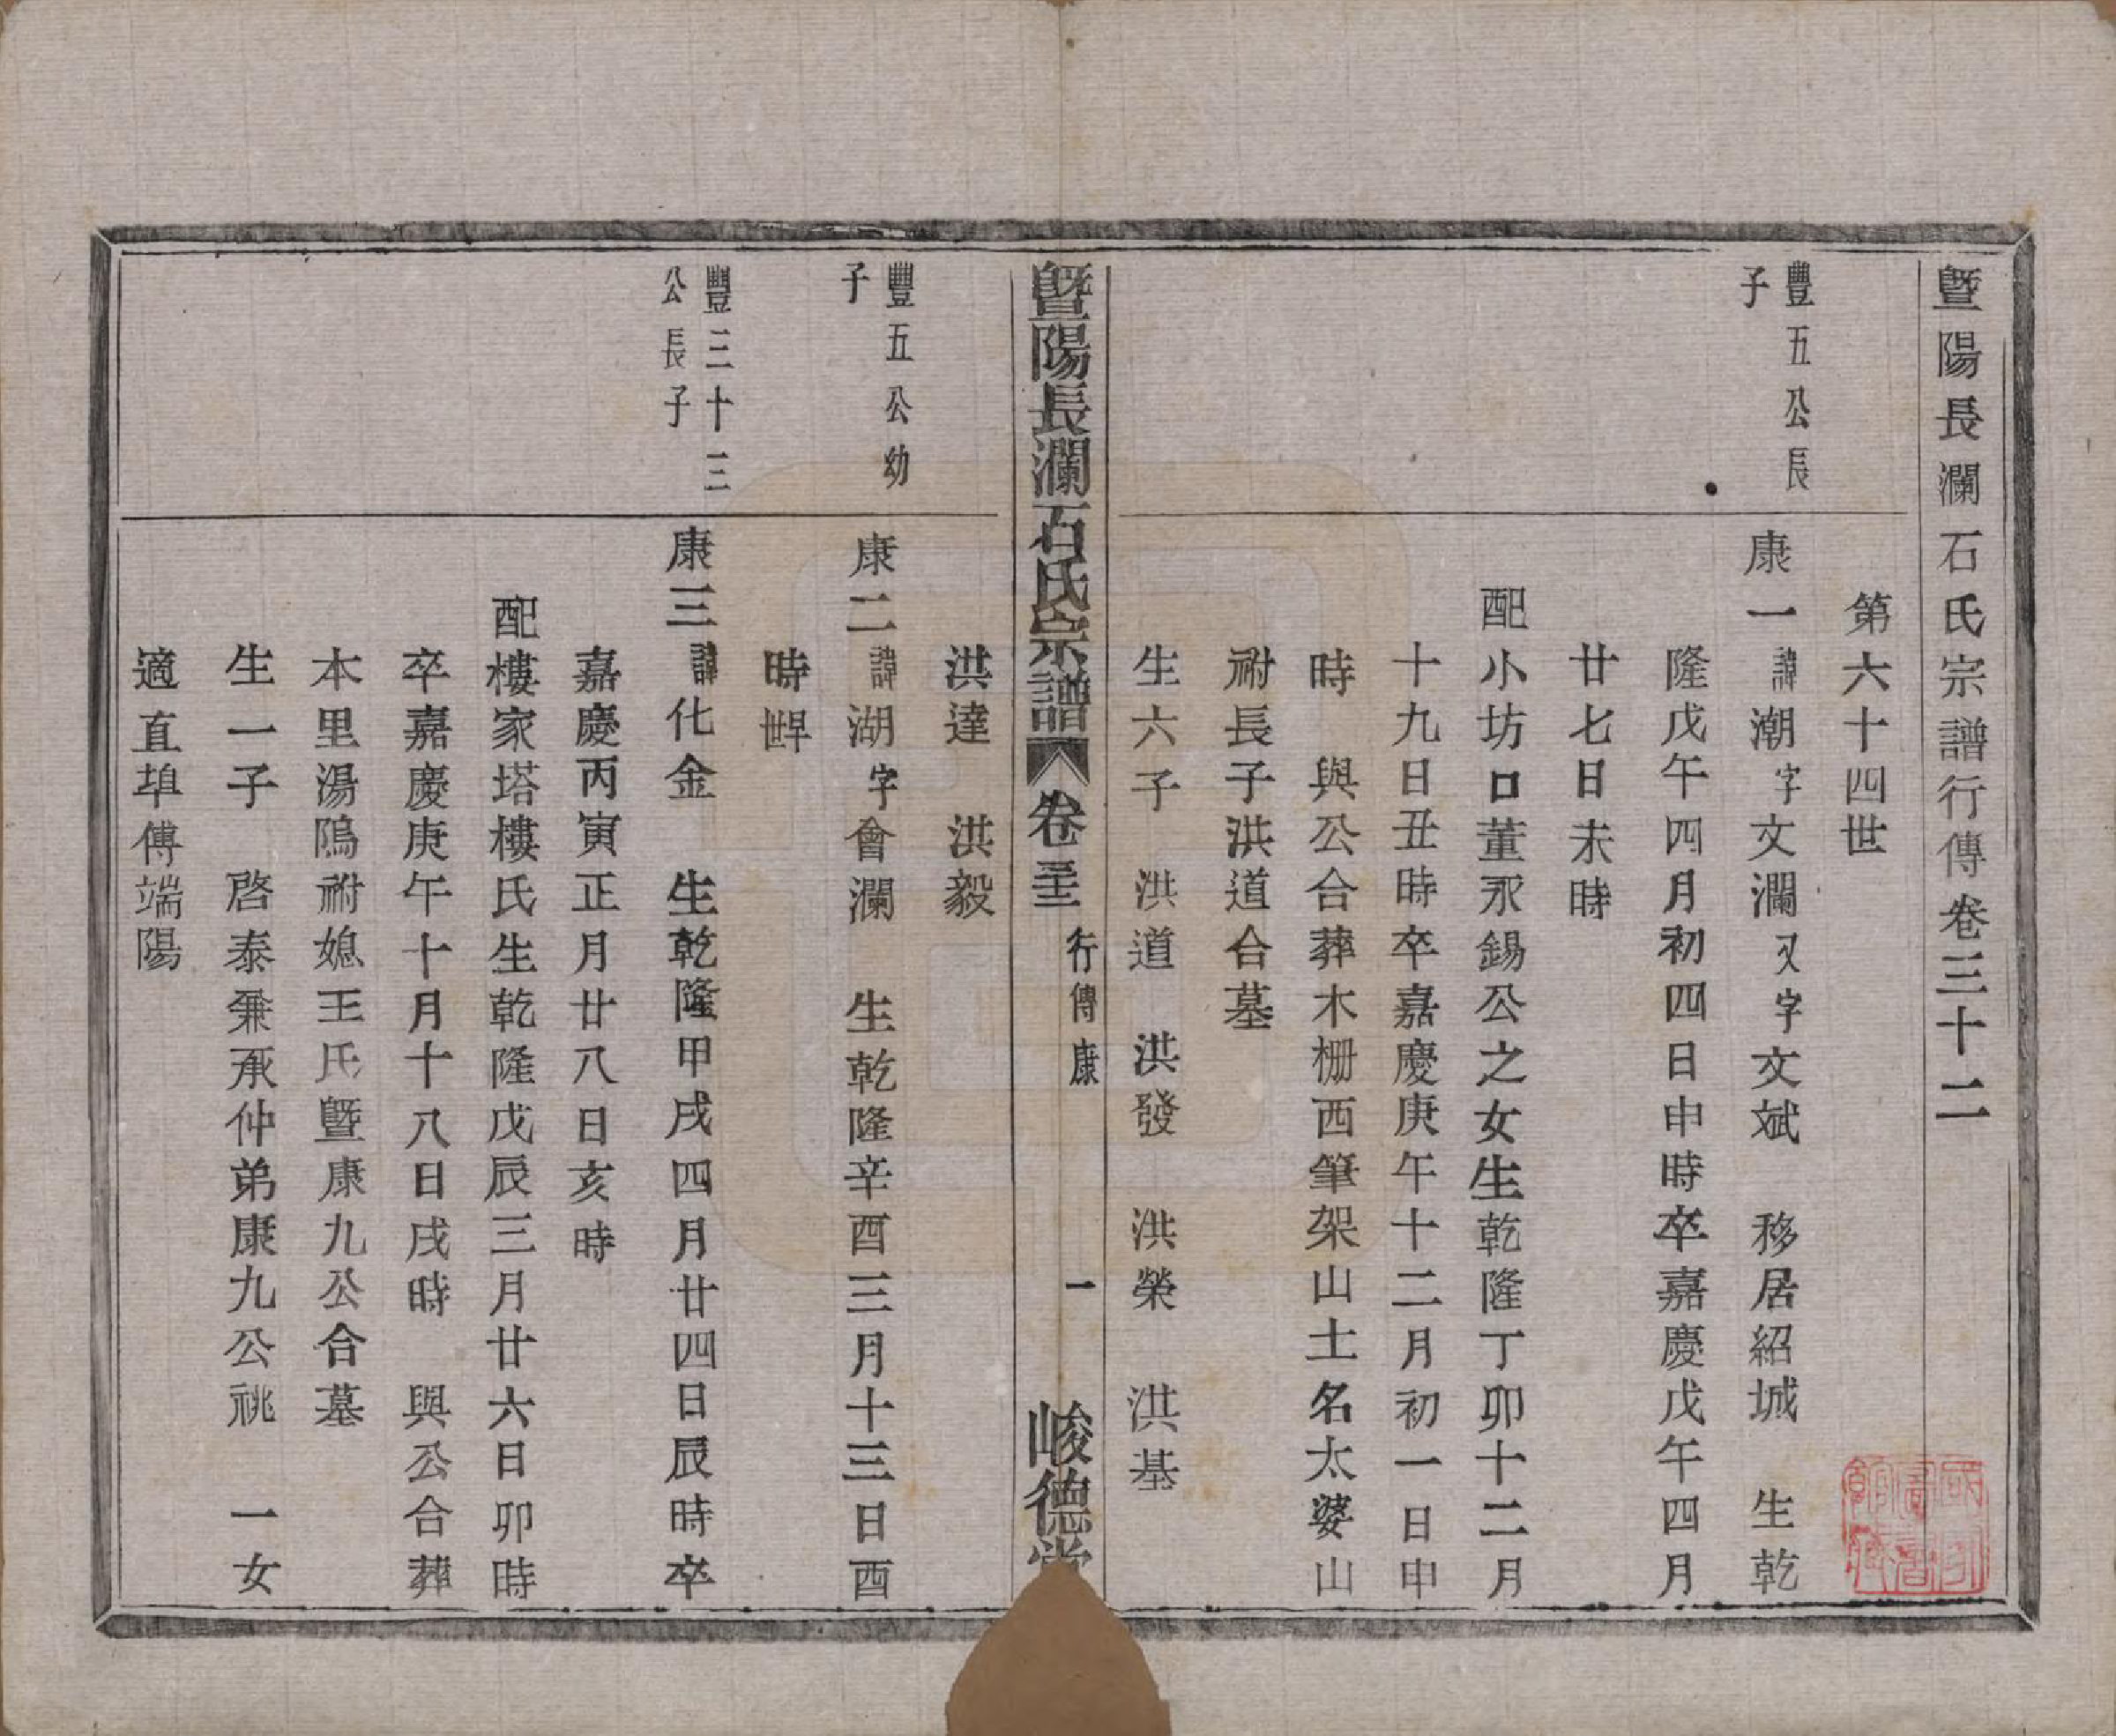 暨陽長瀾石氏宗譜行傳卷三十二
第六十四世
豐五公長
子
康一諱潮字文瀾又字文斌 移居紹城 生乾
隆戊午四月初四日申時卒嘉慶戊午四月
廿七日未時
配小坊口董永錫公之女生乾隆丁卯十二月
十九日丑時卒嘉慶庚午十二月初一日申
時 與公合葬木柵西筆架山土名太婆山
祔長子洪道合墓
生六子 洪道 洪發 洪榮 洪基
暨陽長瀾石氏宗譜 卷三十二 行傳康 一 峻德堂
洪達 洪毅
豐五公幼
子
康二諱湖字會瀾 生乾隆辛酉三月十三日酉
時
豐三十三
公長子
康三諱化金 生乾隆甲戌四月廿四日辰時卒
嘉慶丙寅正月廿八日亥時
配樓家塔樓氏生乾隆戊辰三月廿六日卯時
卒嘉慶庚午十月十八日戌時 與公合葬
本里湯隖祔媳王氏暨康九公合墓
生一子 啓泰兼承仲弟康九公祧 一女
適直埠傅端陽